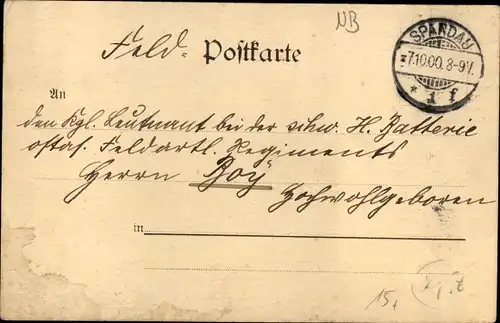 NB
Feld- Postkarte
SPANDAU
7.10.00.8-9V.
* 1 f
An
den Kgl. Leutnant bei der schw. H. Batterie
ostas. Feldartl. Regiments
Herrn Roy
Hochwohlgeboren
in
15,